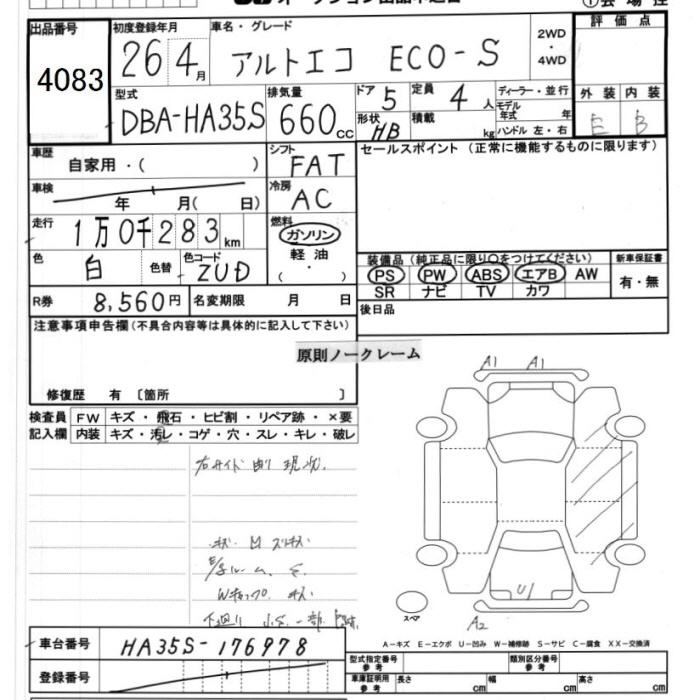 出品番号
4083
初度登録年月
26 4月
車名・グレード
アルトエコ ECO-S
2WD
・
4WD
評価点
型式
DBA-HA35S
排気量
660cc
ドア 5
定員 4人
形状 HB
積載 kg
ディーラー・並行
モデル年式 年
ハンドル 左・右
外装 内装
E B
車歴
自家用・( )
シフト
FAT
セールスポイント(正常に機能するものに限ります)
車検
年 月( 日)
冷房
AC
走行
1万0千283km
燃料
ガソリン
軽油
( ・ )
色
白
色替
色コード
ZUD
装備品(純正品に限り○をつけてください)
PS PW ABS エアB AW
SR ナビ TV カワ
新車保証書
有・無
R券 8,560円
名変期限 月 日
後日品
注意事項申告欄(不具合内容等は具体的に記入して下さい)
原則ノークレーム
修復歴 有〔箇所 〕
検査員
記入欄
FW キズ・飛石・ヒビ割・リペア跡・×要
内装 キズ・汚レ・コゲ・穴・スレ・キレ・破レ
右サイド 現状.
A1 A1
U1
A2
スペア
A-キズ E-エクボ U-凹み W-補修跡 S-サビ C-腐食 XX-交換済
車台番号
HA35S-176978
登録番号
型式指定番号
参考
類別区分番号
参考
車庫証明用
参考
長さ cm
幅 cm
高さ cm